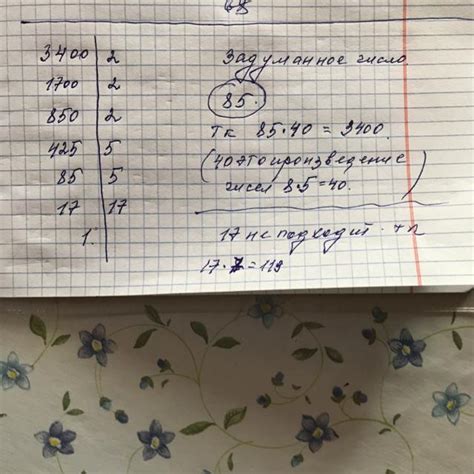 68
3400 | 2
1700 | 2
850 | 2
425 | 5
85 | 5
17 | 17
1.
Задуманное число.
85.
тк 85·40 = 3400.
(40 это произведение
чисел 8·5=40.)
17 не подходит. тк
17·7=119